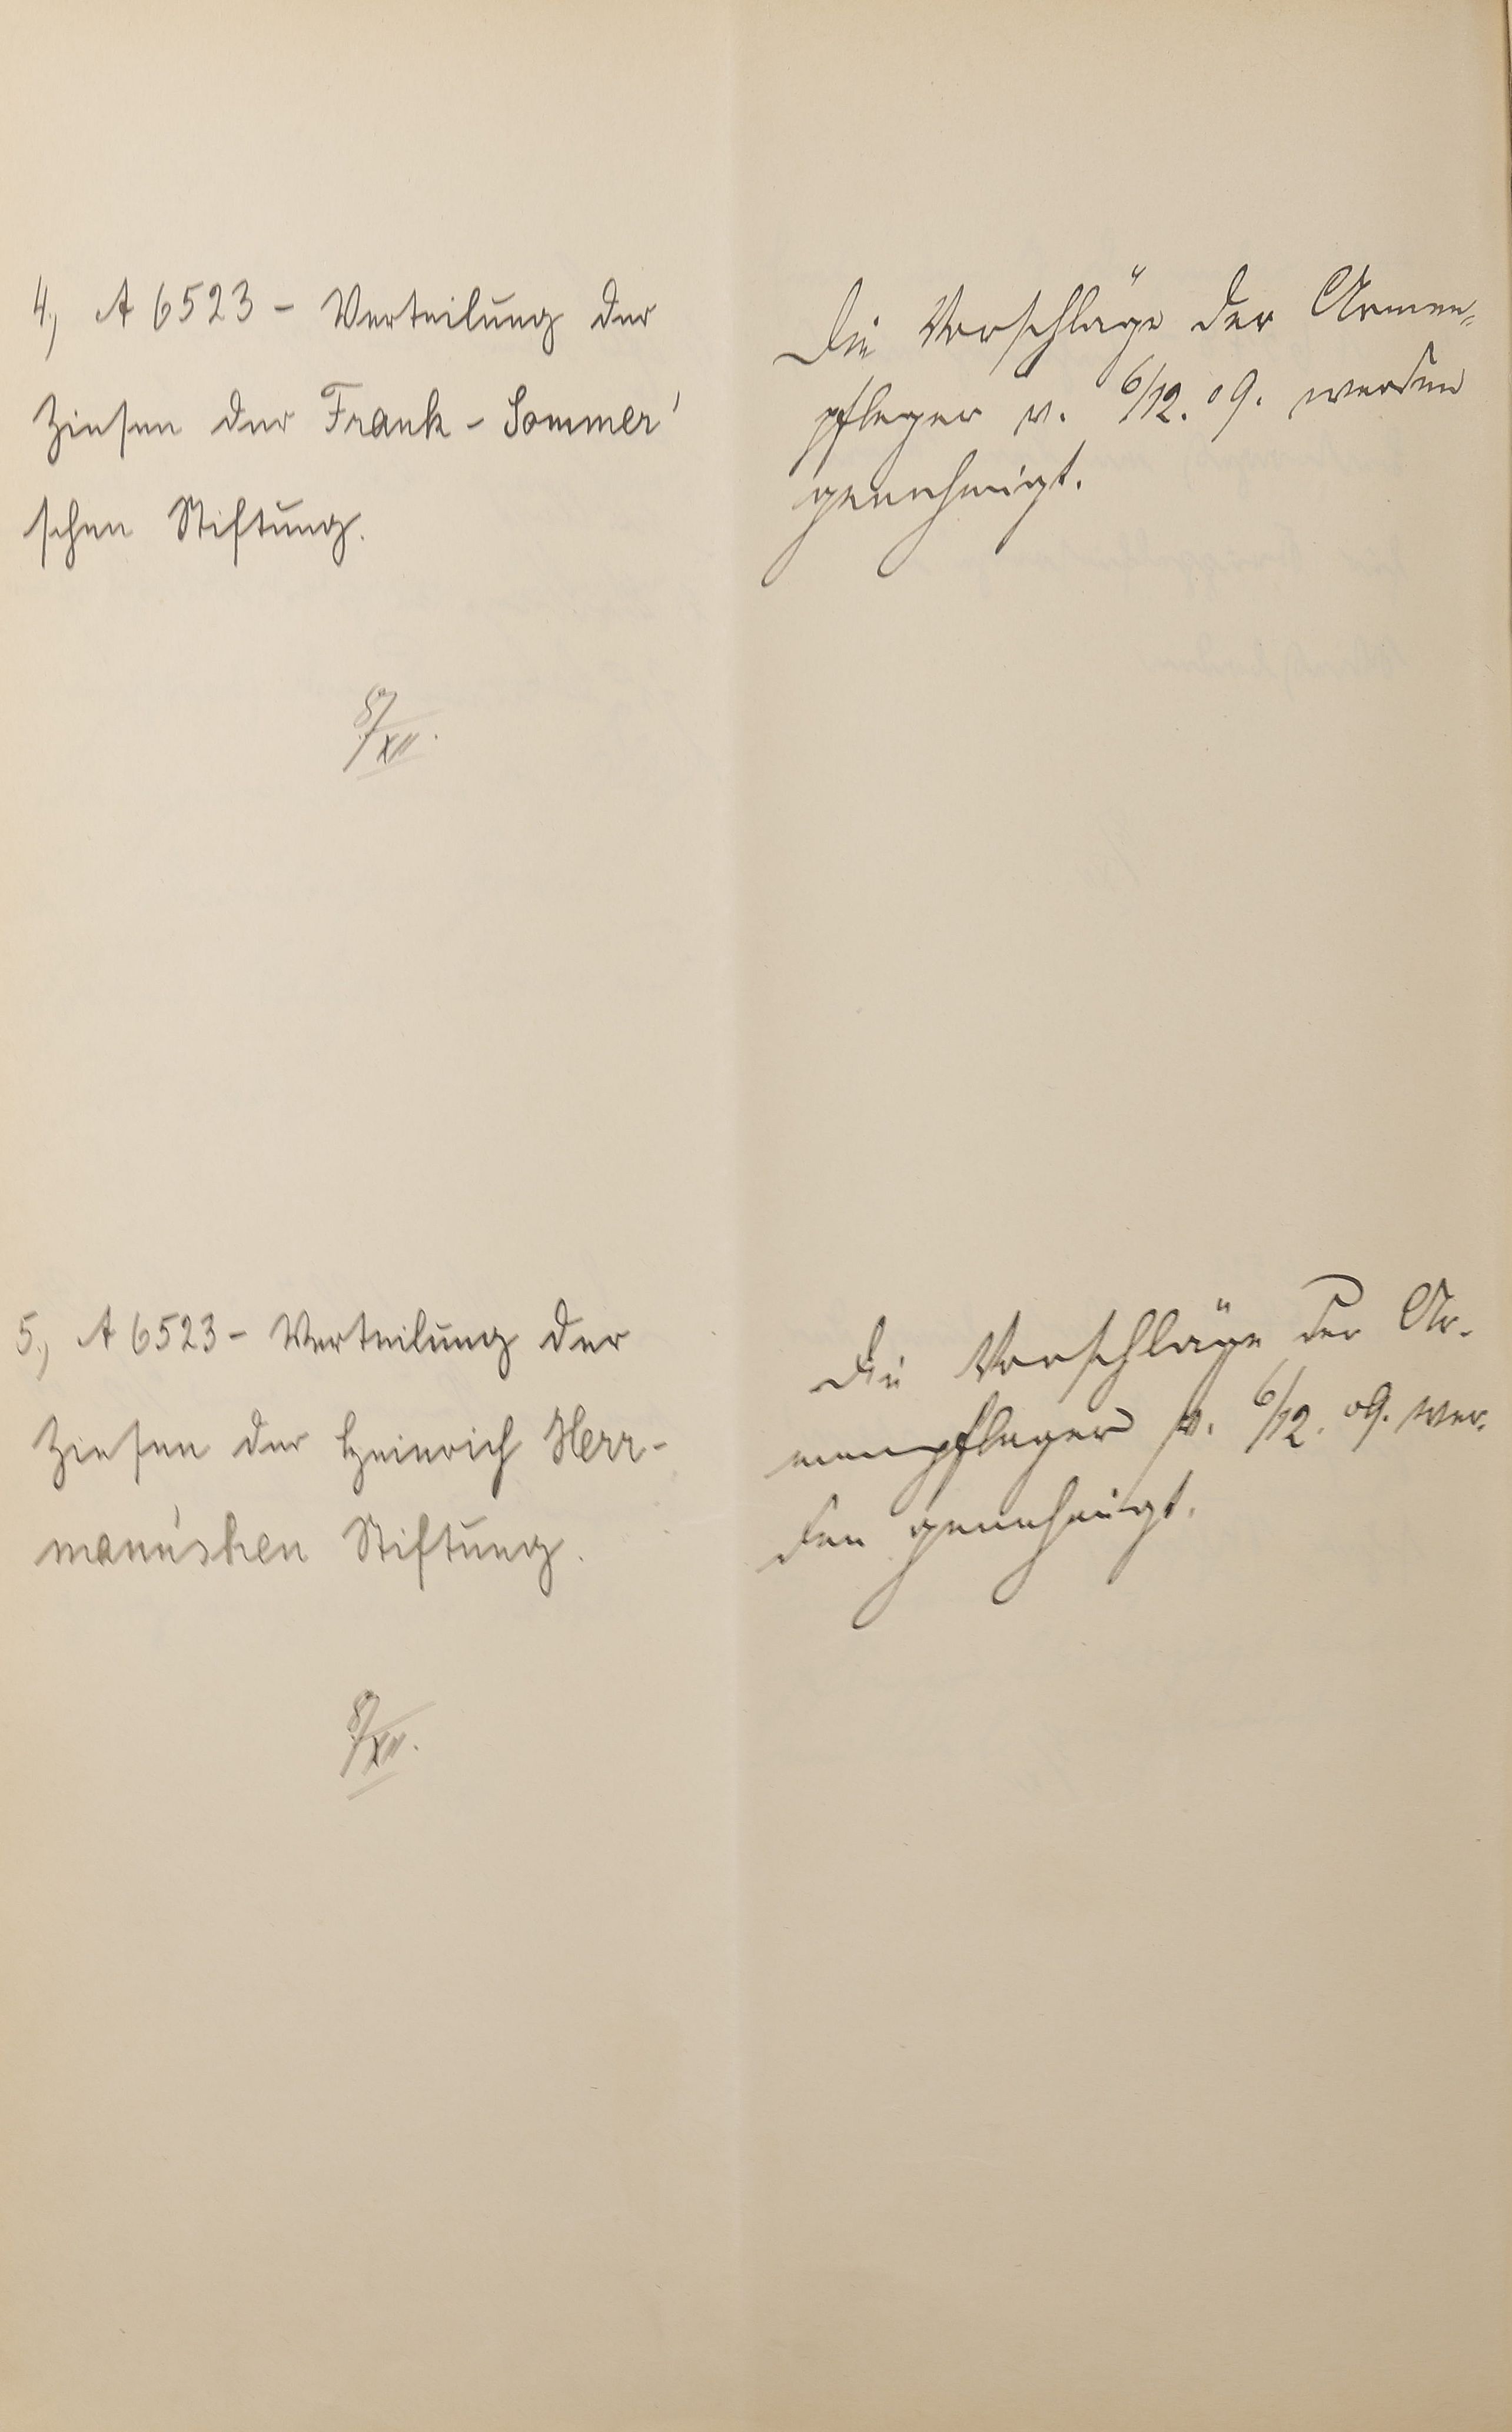 4, A 6523 - Verteilung der
Zinsen der Frank - Sommer'
schen Stiftung.
8/XII.
Die Vorschläge der Armen-
pfleger v. 6/12. 09. werden
genehmigt.
5, A 6523 - Verteilung der
Zinsen der Heinrich Herr-
mann'schen Stiftung.
8/XII.
Die Vorschläge der Ar-
menpfleger v. 6/12. 09. wer-
den genehmigt.